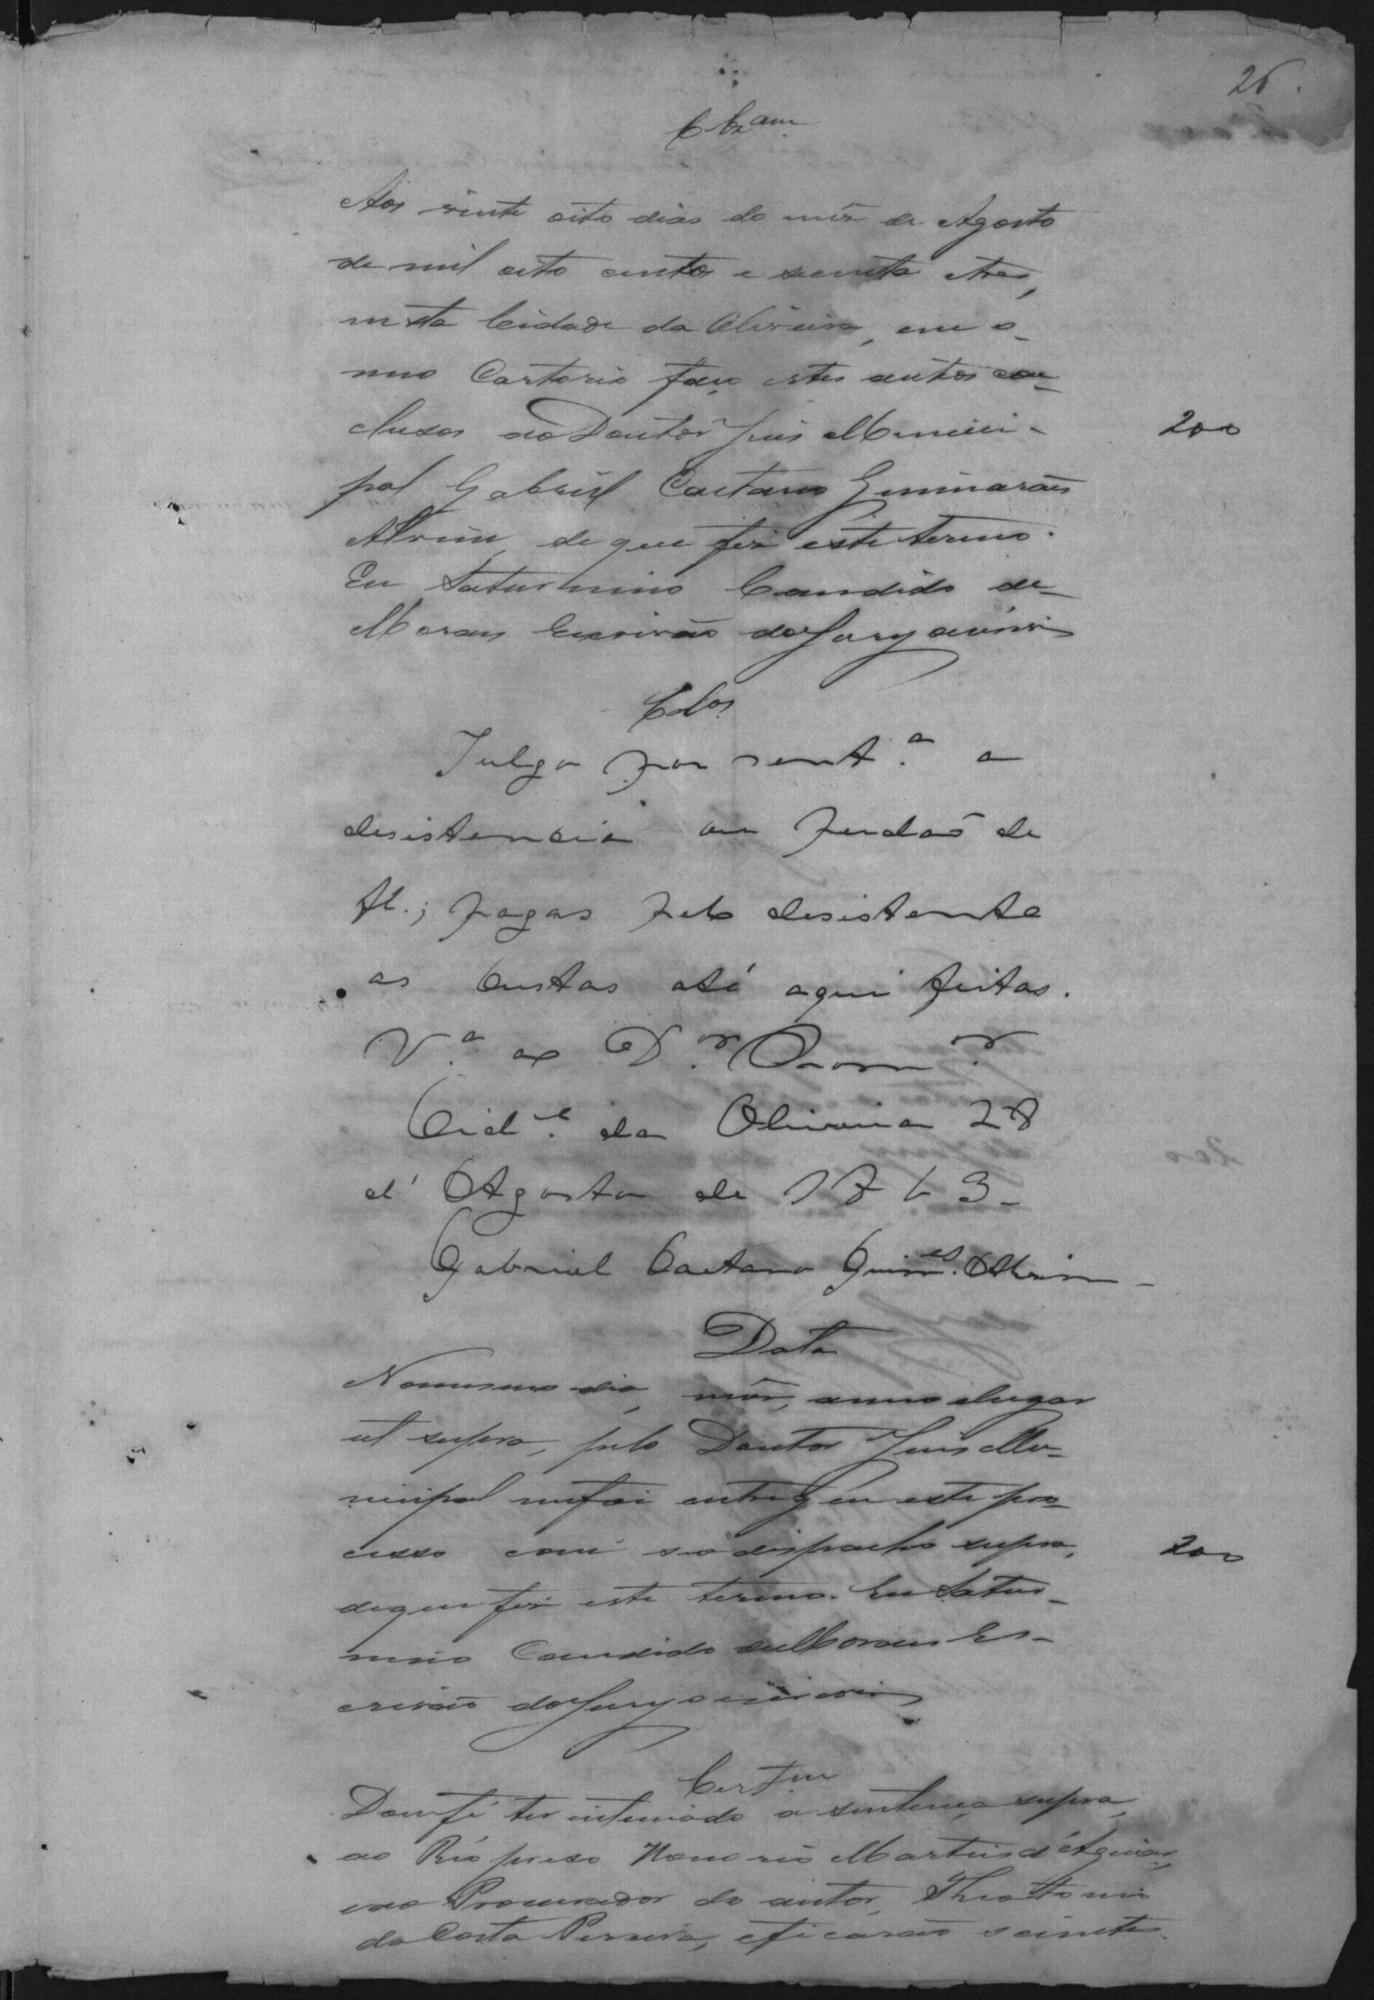 26.
Clzam
Aos vinte oito dias do mês de Agosto
de mil oito centos e secenta etres,
nesta Cidade da Oliveira, em o
meo Cartorio faço estes autos con-
clusos ao Doutor Juis Munici- 200
pal Gabriel Caetano Guimarães
Alvim, de que fiz este termo.
Eu Saturnino Candido de
Moraes Escrivão do Jury
Clos
Julgo por sent.ª a
desistencia ou perdaõ de
fl.; pagas pelo desistente
as Custas até aqui feitas.
V.ª ao D.or Prom.or
Cid.e da Oliveira 28
d' Agosto de 1863-
Gabriel Caetano Guim.es Alvim
Data
Nomesmo dia, mês, anno elugar
ut supra, pelo Doutor Juis Mu-
nicipal mefoi entregue este pro-
cesso com seo despacho supra, 200
deque fiz este termo. Eu Satur-
nino Candido de Moraes Es-
crivão do Jury
Cert.m
Doufé ter intimado a sentença supra,
ao Réo preso Honorio Martins d'Aguiar,
eao Procurador do autor, Theotonio
da Costa Pereira, eficarão scientes.